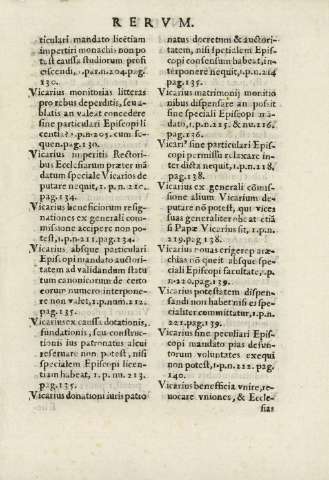 RERVM.
ticulari mandato licētiam
impertiri monachis non po
test caussa studiorum profi
ciscendi, 1.par.n.204.pag.
130.
Vicarius monitorias litteras
pro rebus deperditis, seu a-
blatis an valeat concedere
sine particulari Episcopi li
centia? 1.p.n.205. cum se-
quen.pag.130.
Vicarius imperitis Rectori-
bus Ecclesiarum præter mā
datum speciale Vicarios de
putare nequit, 1. p. n. 210.
pag.134.
Vicarius beneficiorum resig-
nationes ex generali com-
missione accipere non po-
test, 1.p.n.211.pag.134.
Vicarius absque particulari
Episcopi mandato auctori-
tatem ad validandum statu
tum canonicorum de certo
eorum numero interpone-
re non valet, 1.p.num.212.
pag.135.
Vicarius ex caussa dotationis,
fundationis, seu construc-
tionis ius patronatus alcui
reseruare non potest, nisi
specialem Episcopi licen-
tiam habeat, 1. p. nu. 213.
pag.135.
Vicarius donationi iuris patro
natus decretum & auctori-
tatem, nisi specialem Epis-
copi consensum habeat, in-
terponere nequit, 1.p.n.214
pag.135.
Vicarius matrimonij monitio
nibus dispensare an possit
sine speciali Episcopi mā-
dato, 1.p.n.215. & nu.216.
pag.136.
Vicari⁹ sine particulari Epis-
copi permissu relaxare in-
terdicta nequit, 1.p.n.218.
pag.138.
Vicarius ex generali cōmis-
sione alium Vicarium de-
putare nō potest, qui vices
suas generaliter obeat etiā
si Papæ Vicarius sit, 1.p.n.
219.pag.138.
Vicarius nouas erigere paræ-
chias nō queit absque spe-
ciali Episcopi facultate, 1.p.
n.220.pag.139.
Vicarius potestatem dispen-
sandi non habet nisi ei spe-
cialiter committatur, 1.p.n.
221.pag.139.
Vicarius sine peculiari Epis-
copi mandato pias defun-
torum voluntates exequi
non potest, 1.p.n.222.pag.
140.
Vicarius benefficia vnire, re-
uocare vniones, & Eccle-
sias